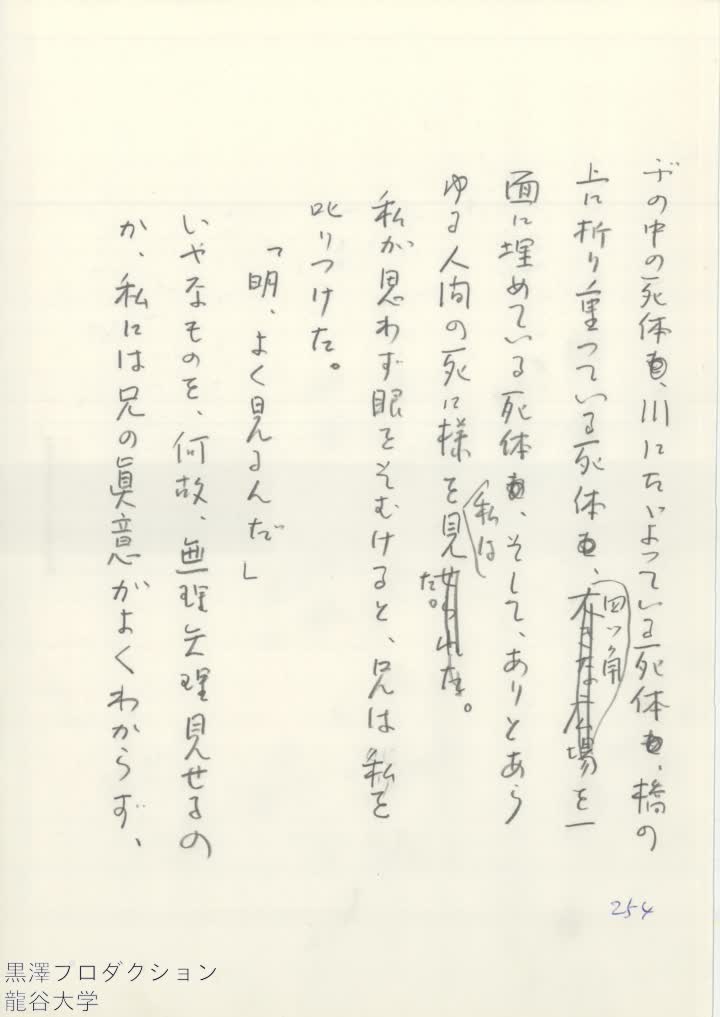 ブの中の死体、川にたゞよつている死体、橋の
上に折り重つている死体、四ツ角を一
面に埋めている死体、そして、ありとあら
ゆる人間の死に様を私は見た。
私が思わず眼をそむけると、兄は私を
叱りつけた。
「明、よく見るんだ」
いやなものを、何故、無理矢理見せるの
か、私には兄の眞意がよくわからず、
254
黒澤プロダクション
龍谷大学